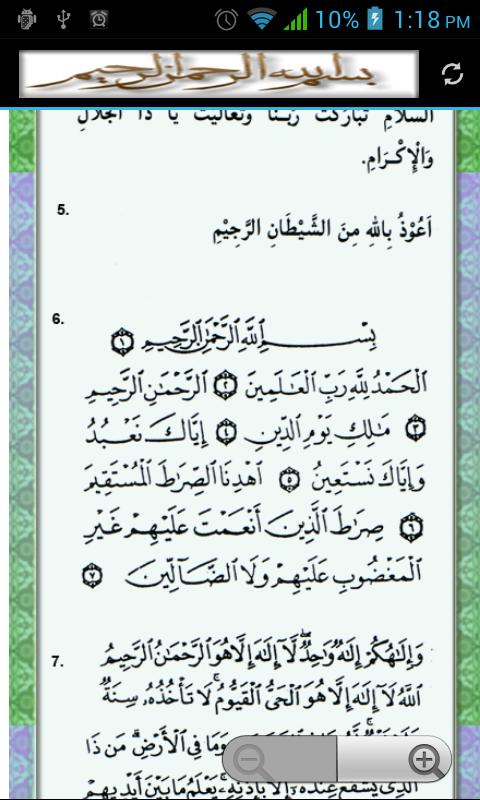 10% 1:18 PM
بسم الله الرحمن الرحيم
السَّلَامِ تَبَارَكْتَ رَبَّنَا وَتَعَالَيْتَ يَا ذَا الْجَلَالِ
وَالْإِكْـرَامِ.
5. اَعُوْذُ بِاللهِ مِنَ الشَّيْطَانِ الرَّجِيْمِ
6. بِسْــــــمِ ٱللَّهِ ٱلرَّحْمَٰنِ ٱلرَّحِيمِ ١
ٱلْحَمْدُ لِلَّهِ رَبِّ ٱلْعَٰلَمِينَ ٢ ٱلرَّحْمَٰنِ ٱلرَّحِيمِ
٣ مَٰلِكِ يَوْمِ ٱلدِّينِ ٤ إِيَّاكَ نَعْبُدُ
وَإِيَّاكَ نَسْتَعِينُ ٥ ٱهْدِنَا ٱلصِّرَٰطَ ٱلْمُسْتَقِيمَ
٦ صِرَٰطَ ٱلَّذِينَ أَنْعَمْتَ عَلَيْهِمْ غَيْرِ
ٱلْمَغْضُوبِ عَلَيْهِمْ وَلَا ٱلضَّآلِّينَ ٧
7. وَإِلَٰهُكُمْ إِلَٰهٌ وَٰحِدٌ ۖ لَّآ إِلَٰهَ إِلَّا هُوَ ٱلرَّحْمَٰنُ ٱلرَّحِيمُ
ٱللَّهُ لَآ إِلَٰهَ إِلَّا هُوَ ٱلْحَىُّ ٱلْقَيُّومُ ۚ لَا تَأْخُذُهُۥ سِنَةٌ
وَمَا فِى ٱلْأَرْضِ ۗ مَن ذَا
ٱلَّذِى يَشْفَعُ عِندَهُۥٓ إِلَّا بِإِذْنِهِۦ ۚ يَعْلَمُ مَا بَيْنَ أَيْدِيهِمْ